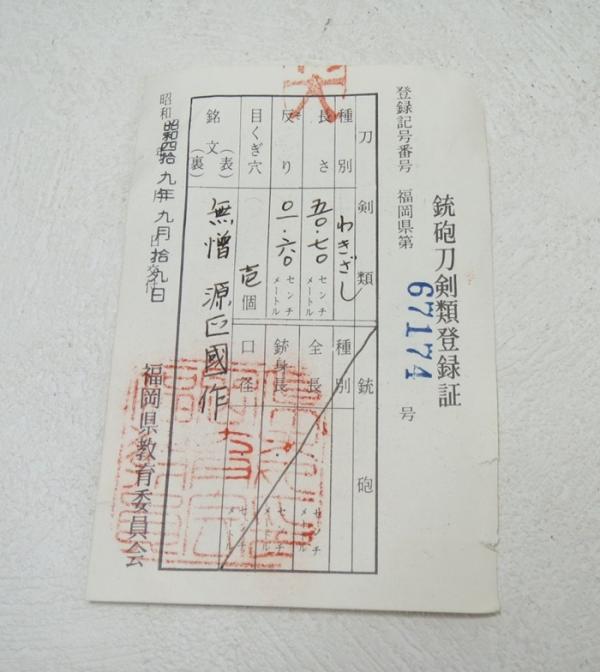 銃砲刀剣類登録証
登録記号番号 福岡県第 67174 号
刀剣類
種別 わきざし
長さ 五〇.七〇 センチメートル
反り 〇一.六〇 センチメートル
目くぎ穴 壱個
銘文 (表) (裏) 無憎 源正國作
銃砲
種別
全長 センチメートル
銃身長 センチメートル
口径 センチメートル
昭和四拾九年九月拾九日
福岡県教育委員会